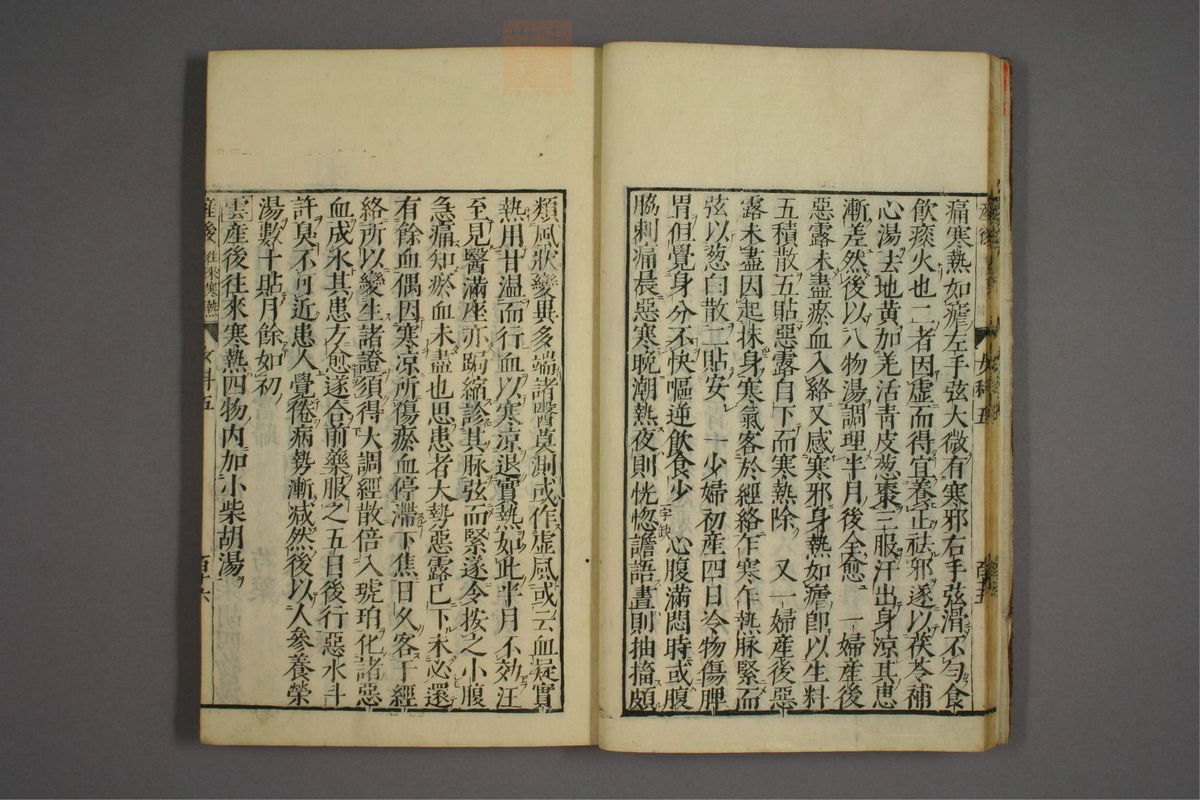 產後
女科五
痛寒熱如瘧左手弦大微有寒邪右手弦滑不勻食
飲痰火也二者因虛而得宜養正祛邪遂以茯苓補
心湯去地黃加羌活青皮葱棗三服汗出身涼其患
漸差然後以八物湯調理半月後全愈 一婦產後
惡露未盡瘀血入絡又感寒邪身熱如瘧即以生料
五積散五貼惡露自下而寒熱除 又一婦產後惡
露未盡因起抹身寒氣客於經絡乍寒乍熱脉緊而
弦以葱白散二貼安 一少婦初產四日冷物傷脾
胃但覺身分不快嘔逆飲食少一字缺心腹滿悶時或腹
脇刺痛晨惡寒晚潮熱夜則恍惚譫語晝則抽搐頗
類風狀變異多端諸醫莫測或作虛風或云血凝實
熱用甘温而行血以寒凉退實熱如此半月不効汪
至見醫滿座亦跼縮診其脉弦而緊遂令按之小腹
急痛知瘀血未盡也思患者大勢惡露已下未必還
有餘血偶因寒凉所傷瘀血停滯下焦日久客于經
絡所以變生諸證須得大調經散倍入琥珀化諸惡
血成水其患方愈遂合前藥服之五日後行惡水斗
許臭不可近患人覺倦病勢漸减然後以人參養榮
湯數十貼月餘如初
雲產後往來寒熱四物內加小柴胡湯
產後 往來寒熱
女科五
百十六